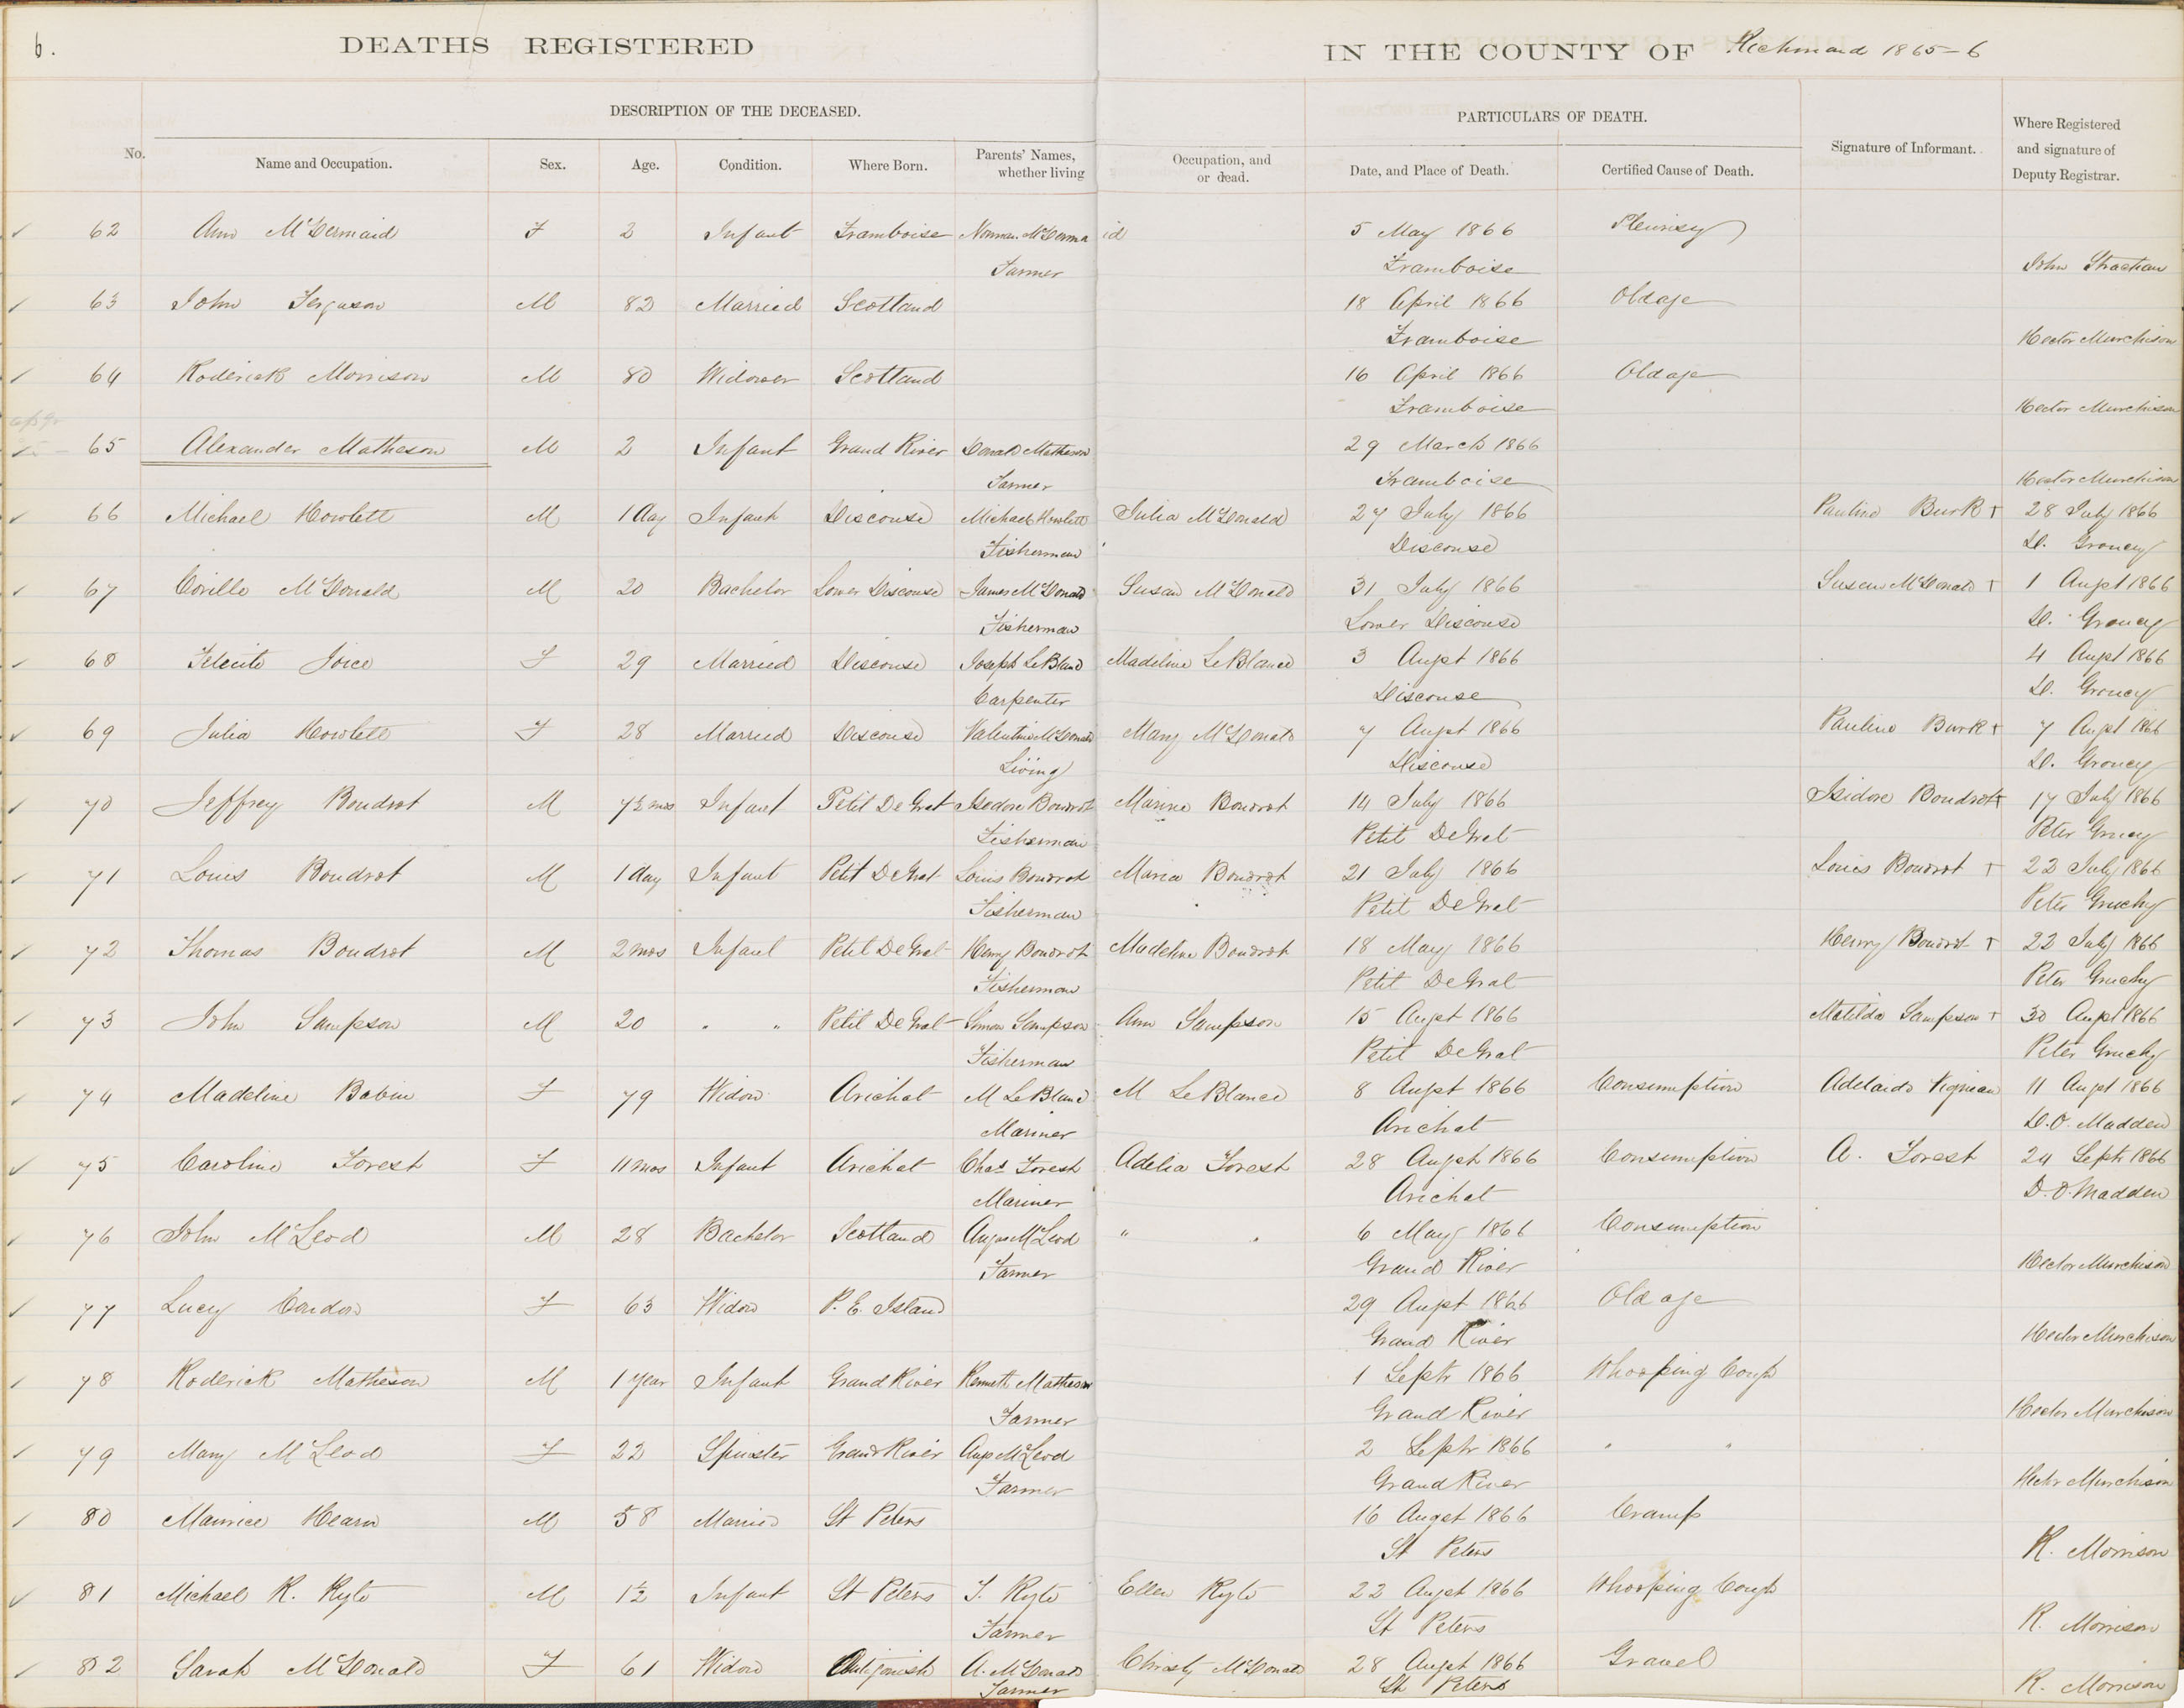 6.
DEATHS REGISTERED IN THE COUNTY OF Richmond 1865-6
DESCRIPTION OF THE DECEASED. PARTICULARS OF DEATH.
No. Name and Occupation. Sex. Age. Condition. Where Born. Parents' Names, whether living Occupation, and or dead. Date, and Place of Death. Certified Cause of Death. Signature of Informant. Where Registered and signature of Deputy Registrar.
62 Ann McDermaid F 2 Infant Framboise Norman McDermaid 5 May 1866 Pleurisy
Farmer Framboise John Strachan
63 John Ferguson M 82 Married Scotland 18 April 1866 Old age
Framboise Hector Murchison
64 Roderick Morrison M 80 Widower Scotland 16 April 1866 Old age
Framboise Hector Murchison
65 Alexander Matheson M 2 Infant Grand River Donald Matheson 29 March 1866
Farmer Framboise Hector Murchison
66 Michael Howlett M 1 day Infant Discouse Michael Howlett Julia McDonald 27 July 1866 Pauline Burk + 28 July 1866
Fisherman Discouse D. Groucy
67 Corillo McDonald M 20 Bachelor Lower Discouse James McDonald Susan McDonald 31 July 1866 Susan McDonald + 1 Augst 1866
Fisherman Lower Discouse D. Groucy
68 Felecite Joice F 29 Married Discouse Joseph LeBlanc Madeline LeBlance 3 Augst 1866 4 Augst 1866
Carpenter Discouse D. Groucy
69 Julia Howlett F 28 Married Discouse Valentine McDonald Mary McDonald 7 Augst 1866 Pauline Burk + 7 Augst 1866
Living Discouse D. Groucy
70 Jeffrey Boudrot M 7½ mos Infant Petit De Grat Isedore Boudrot Marine Boudrot 14 July 1866 Isidore Boudrot + 17 July 1866
Fisherman Petit DeGrat Peter Grucy
71 Louis Boudrot M 1 day Infant Petit DeGrat Louis Boudrot Maria Boudrot 21 July 1866 Louis Boudrot + 22 July 1866
Fisherman Petit DeGrat Peter Gruchy
72 Thomas Boudrot M 2 mos Infant Petit DeGrat Henry Boudrot Madeline Boudrot 18 May 1866 Henry Boudrot + 22 July 1866
Fisherman Petit DeGrat Peter Gruchy
73 John Sampson M 20 " " Petit DeGrat Simon Sampson Ann Sampson 15 Augst 1866 Matilda Sampson + 30 Augst 1866
Fisherman Petit DeGrat Peter Gruchy
74 Madeline Babin F 79 Widow Arichat M LeBlanc M LeBlance 8 Augst 1866 Consumption Adelaide Vigneau 11 Augst 1866
Mariner Arichat D.O. Madden
75 Caroline Forest F 11 mos Infant Arichat Chas Forest Adelia Forest 28 Augst 1866 Consumption A. Forest 24 Septr 1866
Mariner Arichat D.O. Madden
76 John McLeod M 28 Bachelor Scotland Angus McLeod " " 6 May 1866 Consumption
Farmer Grand River Hector Murchison
77 Lucy Condon F 63 Widow P. E. Island 29 Augst 1866 Old age
Grand River Hector Murchison
78 Roderick Matheson M 1 year Infant Grand River Kenneth Matheson 1 Septr 1866 Whooping Cough
Farmer Grand River Hector Murchison
79 Mary McLeod F 22 Spinster Grand River Angs McLeod 2 Septr 1866 " "
Farmer Grand River Hector Murchison
80 Maurice Hearn M 58 Married St Peters 16 Augst 1866 Cramp
St Peters R. Morrison
81 Michael R. Kyte M 1½ Infant St Peters J. Kyte Ellen Kyte 22 Augst 1866 Whooping Cough
Farmer St Peters R. Morrison
82 Sarah McDonald F 61 Widow Antigonish A. McDonald Christy McDonald 28 Augst 1866 Gravel
Farmer St Peters R. Morrison